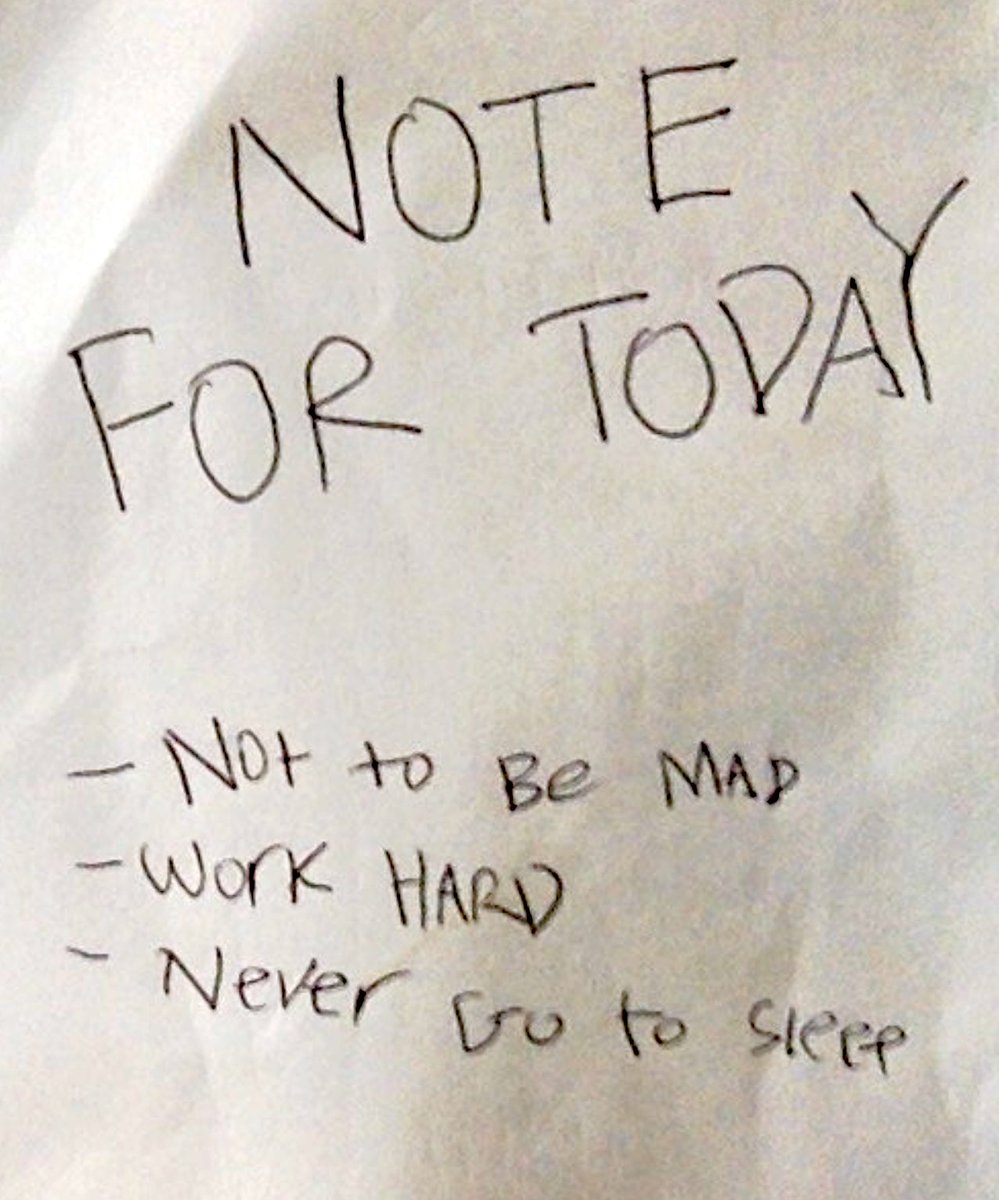 NOTE
FOR TODAY
- Not to Be MAD
- Work HARD
- Never Go to sleep